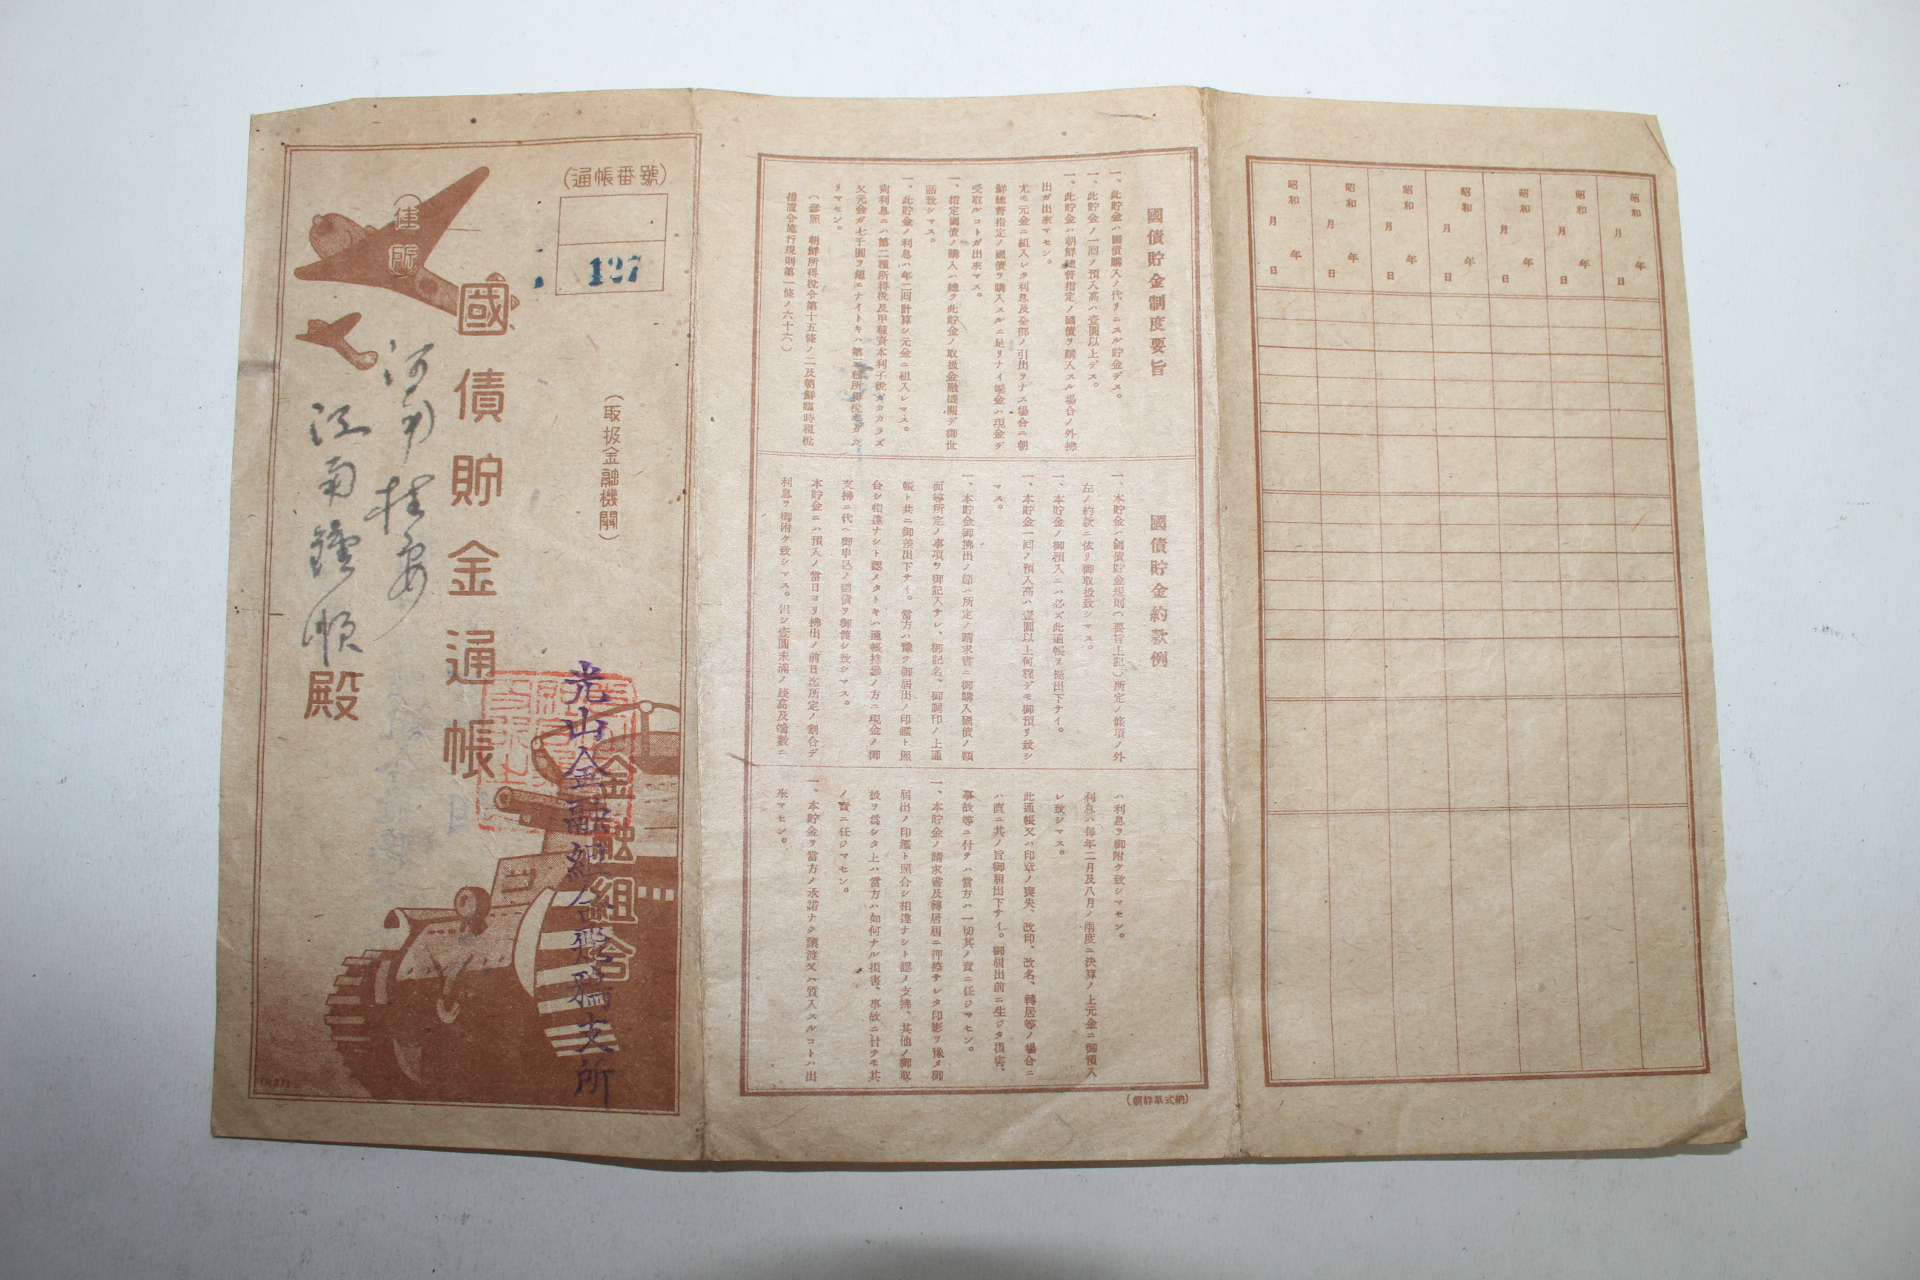 (通帳番號)
127
(住所)
國債貯金通帳
(取扱金融機關)
河南
江南鍾順殿
光山金融組合飛鴉支所
金融組合
國債貯金制度要旨
一、此貯金ハ國債購入ノ代リニスル貯金デス。
一、此貯金ノ一回ノ預入高ハ壹圓以上デス。
一、此貯金ハ朝鮮總督指定ノ國債ヲ購入スル場合ノ外拂
出ガ出來マセン。
尤モ元金ニ組入レタ利息及全部ノ引出ヲナス場合ニ朝
鮮總督指定ノ國債ヲ購入スルニ足リナイ端金ハ現金デ
受取ルコトガ出來マス。
一、指定國債ノ購入ハ總テ此貯金ノ取扱金融機關デ御世
話致シマス。
一、此貯金ノ利息ハ年二回計算シ元金ニ組入レマス。
尙利息ニハ第二種所得稅及甲種資本利子稅ガカカラズ
又元金ガ七千圓ヲ超エナイトキハ第三種所得稅モカカ
リマセン。
(參照 朝鮮所得稅令第十五條ノ二及朝鮮臨時租稅
措置令施行規則第一條ノ六十六)
國債貯金約款例
一、本貯金ハ國債貯金規則(要旨上記)所定ノ條項ノ外
左ノ約款ニ依リ御取扱致シマス。
一、本貯金ノ御預入ニハ必ズ此通帳ヲ提出下サイ。
一、本貯金一回ノ預入高ハ壹圓以上何程デモ御預リ致シ
マス。
一、本貯金御拂出ノ節ハ所定ノ請求書ニ御購入國債ノ額
面等所定ノ事項ヲ御記入サレ、御記名、御調印ノ上通
帳ト共ニ御差出下サイ。當方ハ豫テ御屆出ノ印鑑ト照
合シ相違ナシト認メタトキハ通帳持參ノ方ニ現金ノ御
支拂ニ代ヘ御申込ノ國債ヲ御渡シ致シマス。
本貯金ニハ預入ノ當日ヨリ拂出ノ前日迄所定ノ割合デ
利息ヲ御附ケ致シマス。但シ壹圓未滿ノ殘高及端數ニ
ハ利息ヲ御附ケ致シマセン。
利息ハ每年二月及八月ノ兩度ニ決算ノ上元金ニ御預入
レ致シマス。
此通帳又ハ印章ノ喪失、改印、改名、轉居等ノ場合ニ
ハ直ニ其ノ旨御屆出下サイ。御屆出前ニ生ジタ損害、
事故等ニ付テハ當方ハ一切其ノ責ニ任ジマセン。
一、本貯金ノ請求書及轉居屆ニ押捺サレタ印影ヲ豫メ御
屆出ノ印鑑ト照合シ相違ナシト認メ支拂、其他ノ御取
扱ヲ爲シタ上ハ當方ハ如何ナル損害、事故ニ付テモ其
ノ責ニ任ジマセン。
一、本貯金ヲ當方ノ承諾ナク讓渡又ハ質入スルコトハ出
來マセン。
(朝鮮單式納)
昭和 年 月 日
昭和 年 月 日
昭和 年 月 日
昭和 年 月 日
昭和 年 月 日
昭和 年 月 日
昭和 年 月 日